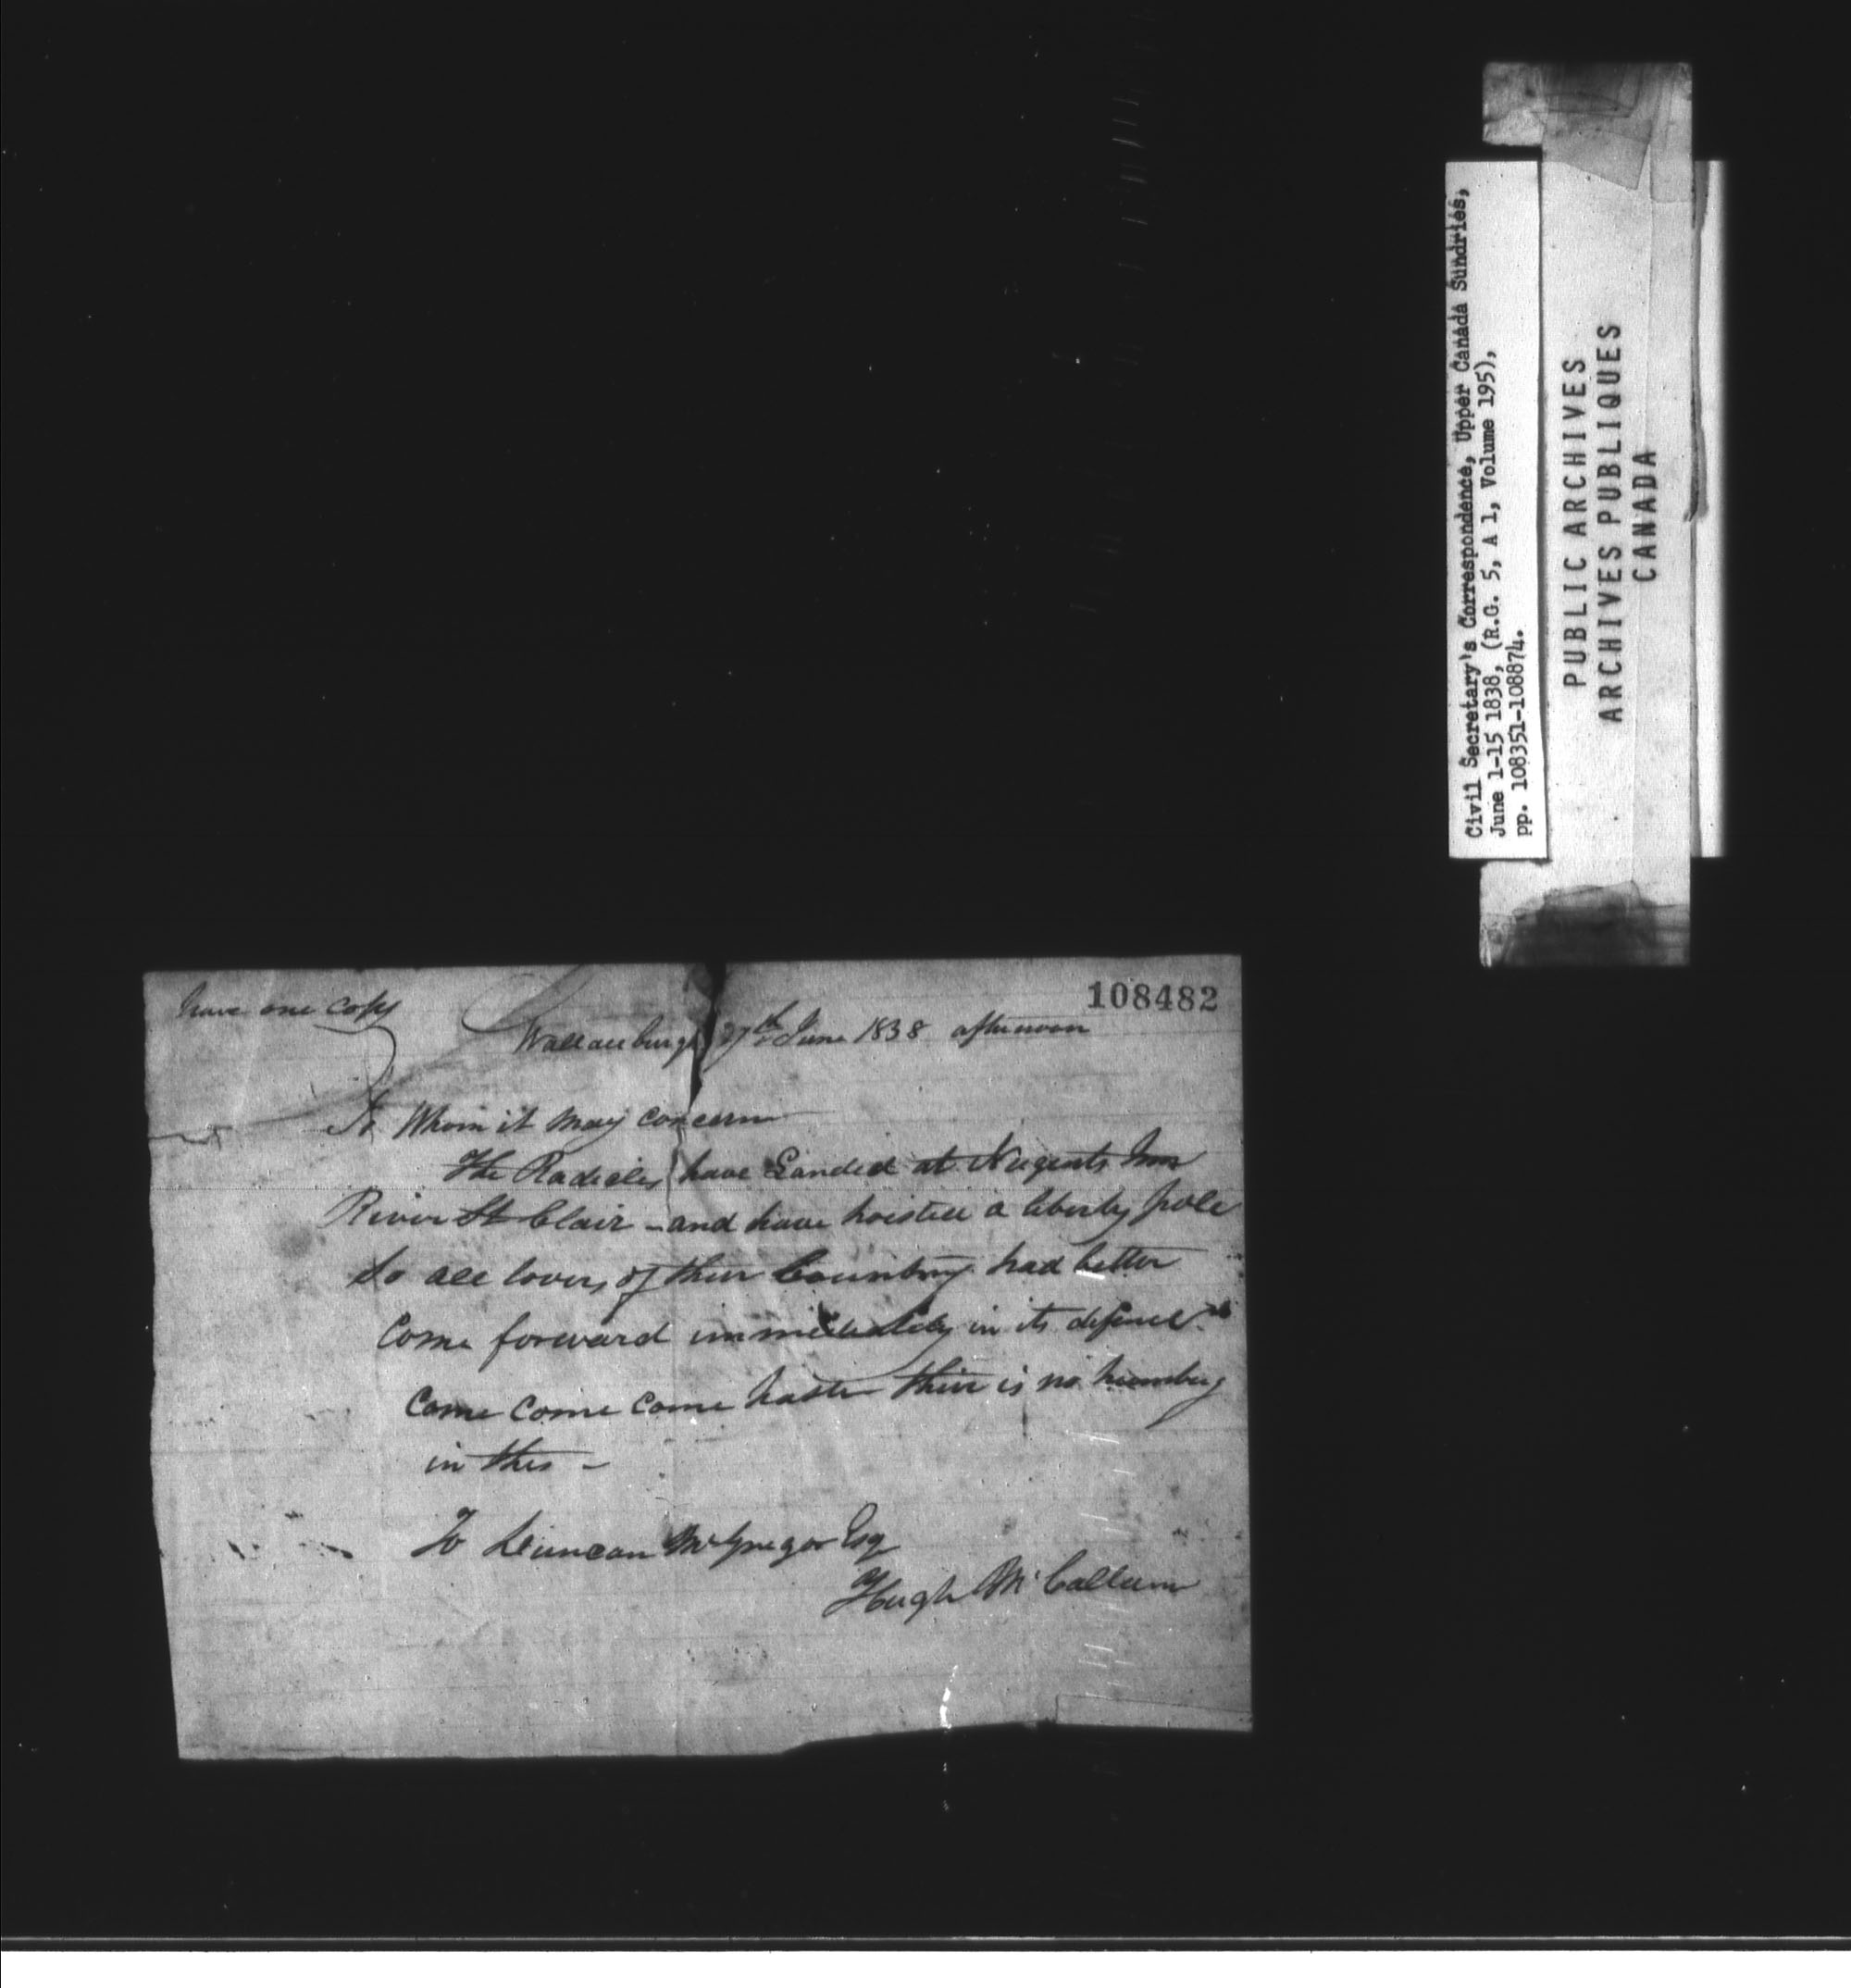 have one copy
108482
Wallaceburgh 27th June 1838 afternoon
To Whom it may concern
The Radicles have Landed at Nugents Inn
River St Clair - and have hoisted a liberty pole
So all lovers of their Country had better
Come forward immediately in its defence
Come Come Come haste their is no humbug
in this -
To Duncan McGregor Esq
Hugh McCallum
Civil Secretary's Correspondence, Upper Canada Sundries,
June 1-15 1838, (R.G. 5, A 1, Volume 195),
pp. 108351-108874.
PUBLIC ARCHIVES
ARCHIVES PUBLIQUES
CANADA